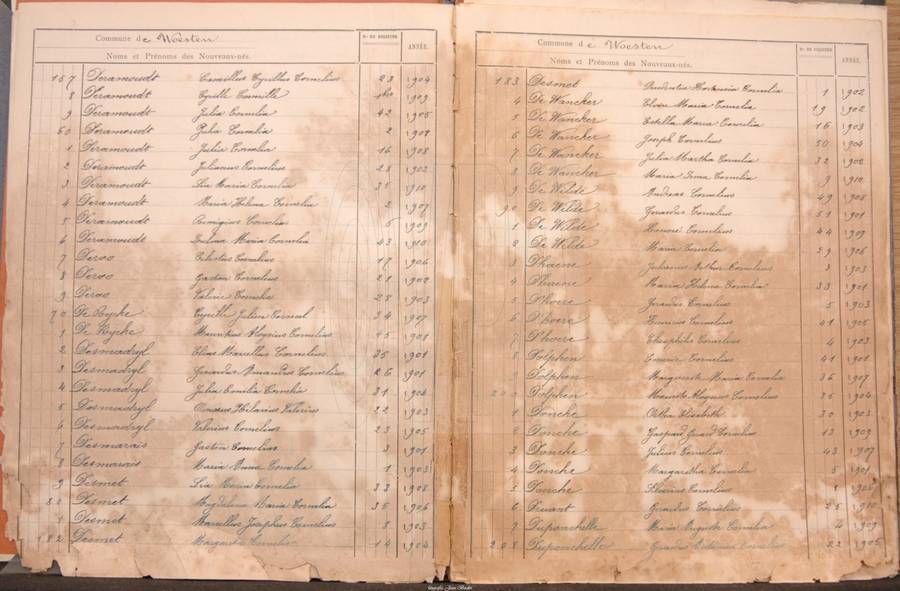 Commune de Woesten
Nos DU REGISTRE
ANNÉE.
Noms et Prénoms des Nouveaux-nés.
157 Deramoudt Camillus Cyrillus Cornelius 23 1904
8 Deramoudt Cyrille Corneille 1909
9 Deramoudt Julia Cornelia 42 1905
60 Deramoudt Julia Cornelia 2
1 Deramoudt Julia Cornelia 16 1908
2 Deramoudt Julianus Cornelius 28 1902
3 Deramoudt Lia Maria Cornelia 35 1910
4 Deramoudt Maria Helena Cornelia 2 1907
5 Deramoudt Remigius Cornelis 6 1909
6 Deramoudt Maria Cornelia 43 1910
7 Deroo Celestus Cornelius 17 1906
8 Deroo Gaston Cornelius 21 1902
9 Deroo Valerie Cornelia 25 1903
70 De Rycke Cyrille Julien Corneel 34 1907
1 De Rycke Mauritius Aloysius Cornelius 45 1908
2 Desmadryl Elias Marcellus Cornelius 35 1901
3 Desmadryl Gerardus Amandus Cornelius 26 1901
4 Desmadryl Julia Emilia Cornelia 31 1904
5 Desmadryl Omerus Hilarius Valerius 22 1903
6 Desmadryl Valerius Cornelius 23 1905
7 Desmarais Gaston Cornelius 3 1901
8 Desmarais Maria Anna Cornelia 1 1903
9 Desmet Lia Maria Cornelia 33 1908
80 Desmet Magdalena Maria Cornelia 35 1906
1 Desmet Marcellus Josephus Cornelius 8 1903
182 Desmet Margareta Cornelia 14 1904
Commune de Woesten
Nos DU REGISTRE
ANNÉE.
Noms et Prénoms des Nouveaux-nés.
183 Desmet Prudentia Hortensia Cornelia 1 1902
4 De Wancker Elvire Maria Cornelia 19 1902
5 De Wancker Estella Maria Cornelia 16 1903
6 De Wancker Joseph Cornelius 50 1904
7 De Wancker Julia Martha Cornelia 32 1902
8 De Wancker Maria Irma Cornelia 9 1910
9 De Wilde Andreas Cornelius 49 1908
90 De Wilde Gerardus Cornelius 51 1901
1 De Wilde Honoré Cornelius 44 1907
2 De Wilde Maria Cornelia 29 1906
3 Dhaene Julianus Arthur Cornelius 3 1903
4 Dhaene Maria Helena Cornelia 33 1901
5 D'hoere Gerardus Cornelius 5 1903
6 D'hoere Cornelius 41 1905
7 D'hoere Theophile Cornelius 4 1903
8 Dolphen Cornelius 41 1901
Dolphen Margareta Maria Cornelia 36 1907
200 Dolphen Maurits Aloysius Cornelius 35 1904
1 Donche Bertha Elisabeth 30 1903
2 Donche Gaspard Gerard Cornelius 13 1909
3 Donche Julius Cornelius 43 1907
4 Donche Margaretha Cornelia 5 1901
5 Donche Silverius Cornelius
6 Druant Gerardus Cornelius 25 1910
7 Duponchelle Maria Augusta Cornelia 4 1909
208 Duponchelle Gerardus Antonius Cornelius 22 1905